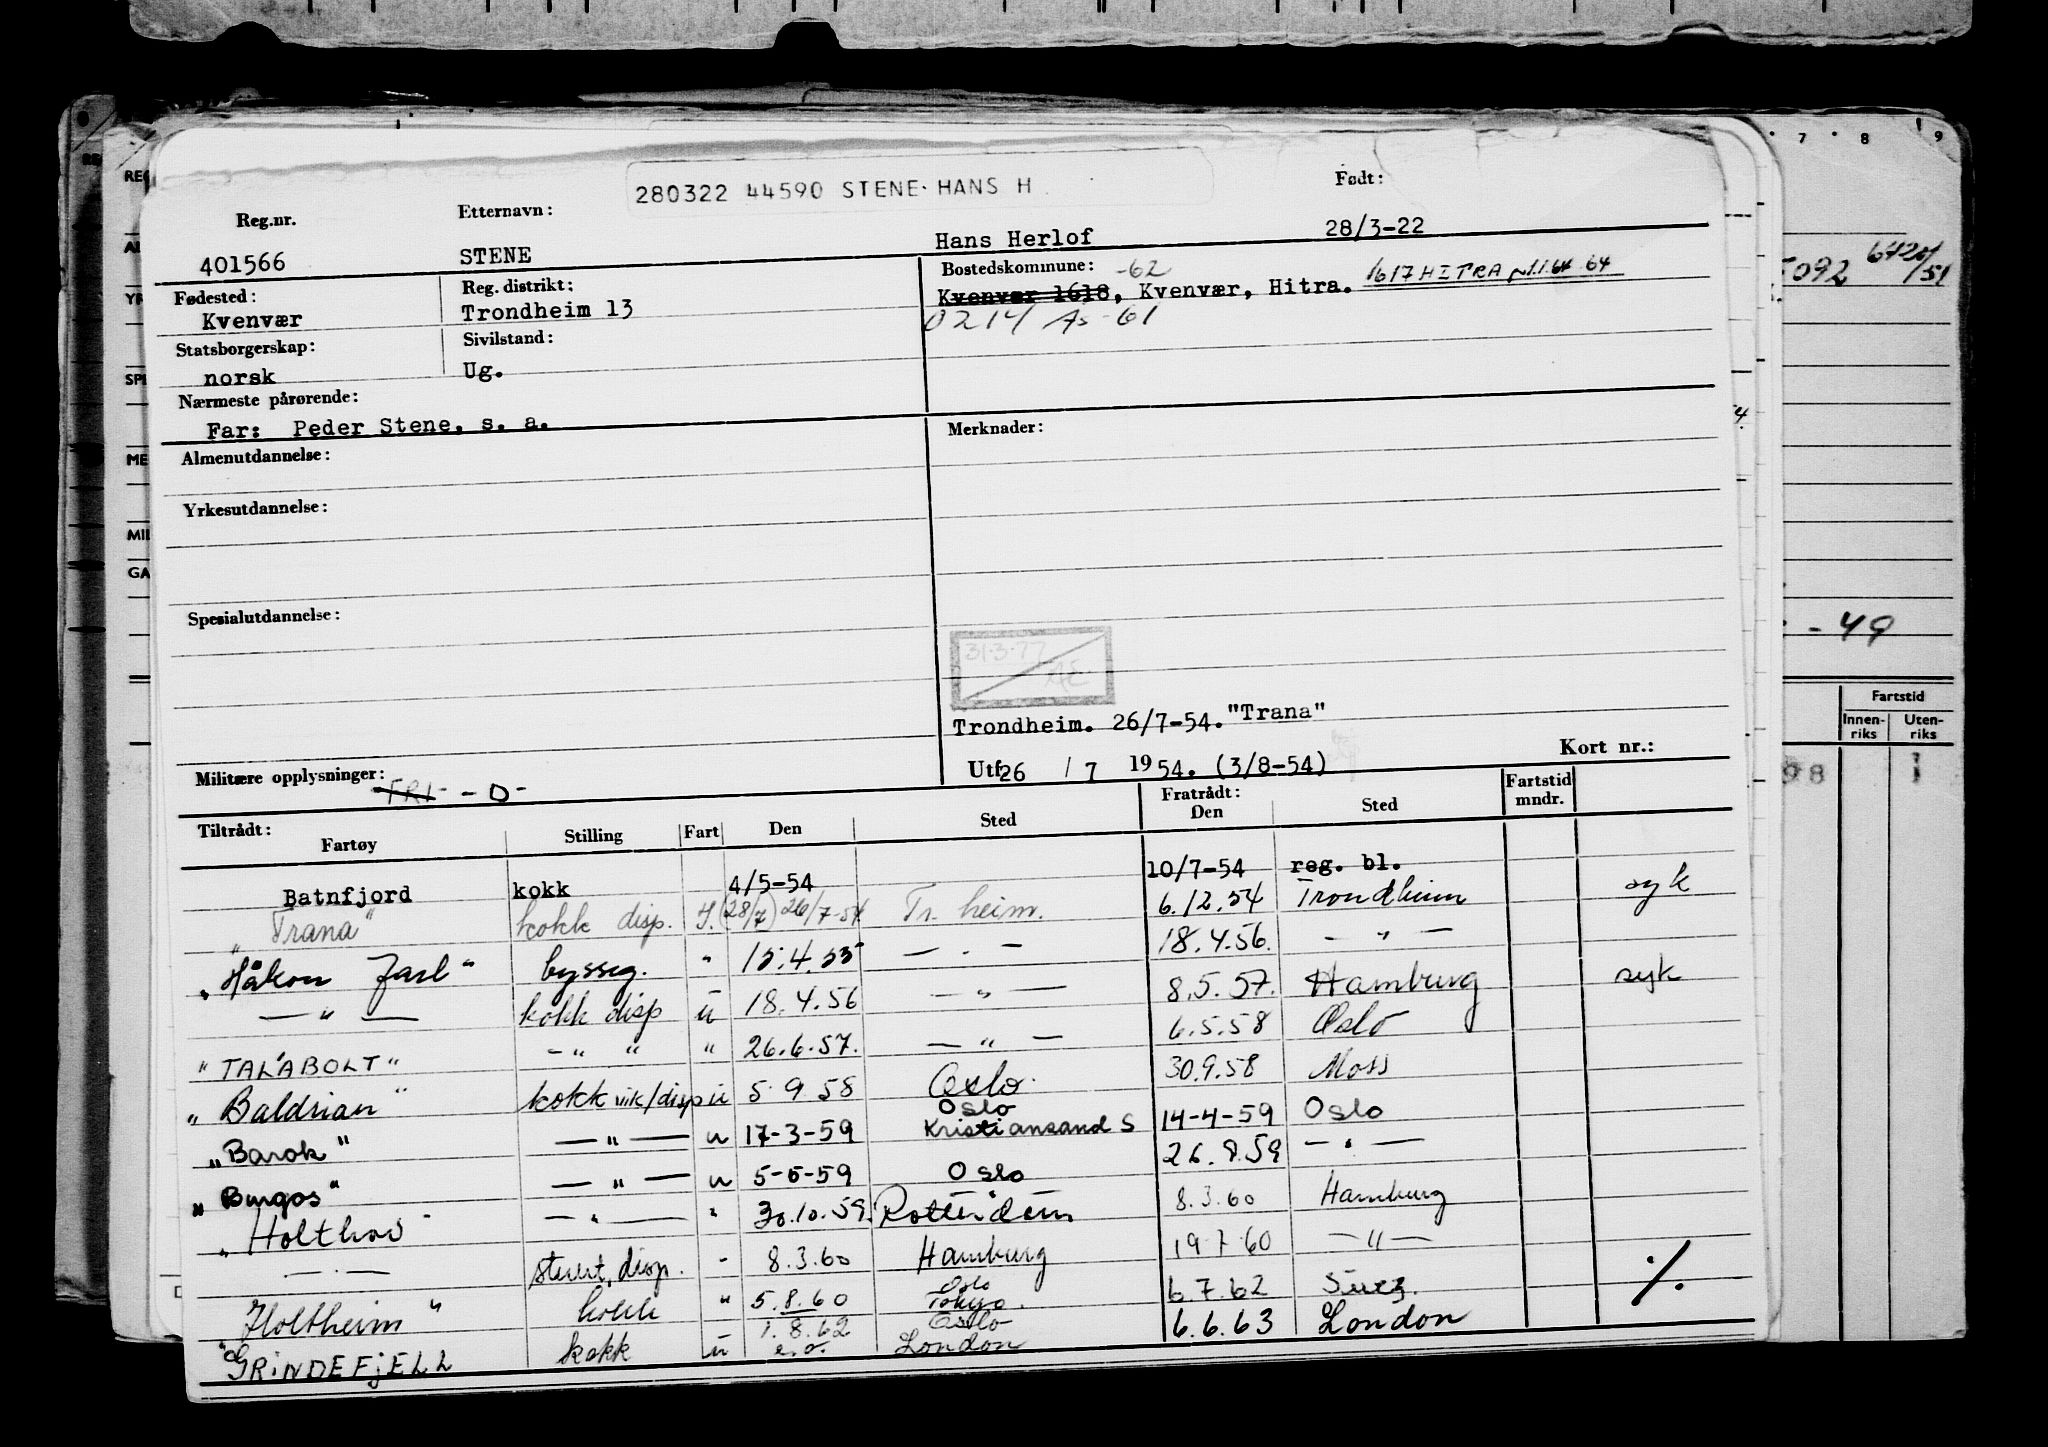 280322 44590 STENE HANS H
Reg.nr. Etternavn: Født:
401566 STENE Hans Herlof 28/3-22
Fødested: Reg. distrikt: Bostedskommune: -62
Kvenvær Trondheim 13 Kvenvær 1618, Kvenvær, Hitra. 1617 HITRA 1.1.64 64
0214 Ås -61
Statsborgerskap: Sivilstand:
norsk Ug.
Nærmeste pårørende:
Far: Peder Stene, s. a.
Almenutdannelse: Merknader:
Yrkesutdannelse:
Spesialutdannelse:
31.3.77
Trondheim. 26/7-54. "Trana"
Utf 26 / 7 1954. (3/8-54) Kort nr.:
Militære opplysninger: FRI - D -
Tiltrådt: Fratrådt: Fartstid mndr.
Fartøy Stilling Fart Den Sted Den Sted
Batnfjord kokk 4/5-54 10/7-54 reg. bl.
"Trana" kokk disp. (28/7) 26/7-54 Tr. heim. 6.12.54 Trondheim syk
"Håkon Jarl" bysseg. " 15.4.55 — " — 18.4.56. — " —
— " — kokk disp u 18.4.56 — " — 8.5.57. Hamburg syk
"TALABOLT" — " " " 26.6.57. — " — 6.5.58 Oslo
"Baldrian" kokk vik/disp u 5 9 58 Oslo 30.9.58 Moss
"Barok" — " — u 17-3-59 Oslo Kristiansand S 14-4-59 Oslo
"Burgos" — " — u 5-5-59 Oslo 26.8.59 — " —
"Holthav" — " — " 30.10.59. Rotterdam 8.3.60 Hamburg
— " — stuert, disp. " 8.3.60 Hamburg 19 7 60 — " —
Holtheim" kokk " 5.8.60 Oslo 6.7.62 Suez. %
Tokyo.
"GRINDEFJELL kokk u 1.8.62 Oslo 6.6.63 London
e.o. London
7 8 9
5092 6420/51
- 49
Fartstid
Innen-riks Uten-riks
98 1